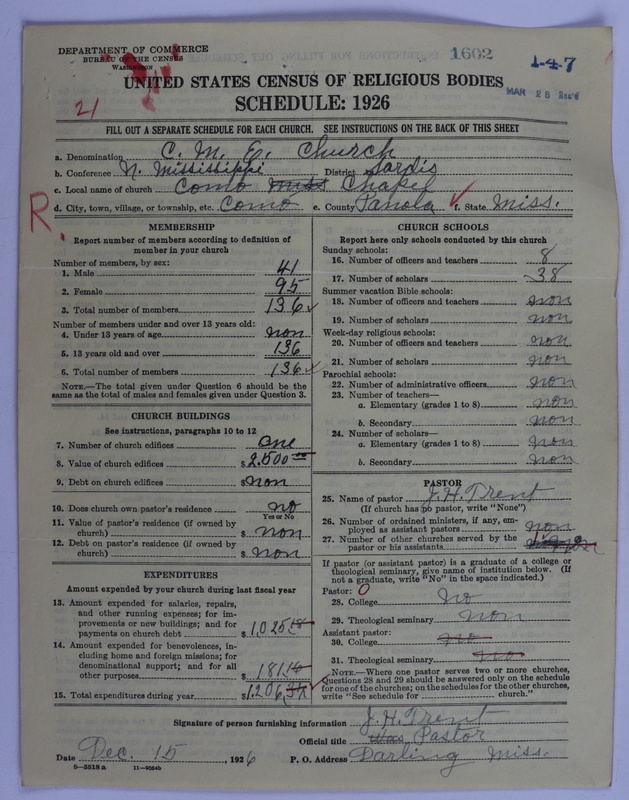 DEPARTMENT OF COMMERCE
BUREAU OF THE CENSUS
WASHINGTON
1602
1-4-7
MAR 28
UNITED STATES CENSUS OF RELIGIOUS BODIES
SCHEDULE: 1926
21
FILL OUT A SEPARATE SCHEDULE FOR EACH CHURCH. SEE INSTRUCTIONS ON THE BACK OF THIS SHEET
a. Denomination C. M. E. Church
b. Conference N. Mississippi District Sardis
c. Local name of church Como Miss Chapel
d. City, town, village, or township, etc. Como e. County Panola f. State Miss.
R.
MEMBERSHIP
Report number of members according to definition of
member in your church
Number of members, by sex:
1. Male 41
2. Female 95
3. Total number of members 136
Number of members under and over 13 years old:
4. Under 13 years of age non
5. 13 years old and over 136
6. Total number of members 136
NOTE.—The total given under Question 6 should be the
same as the total of males and females given under Question 3.
CHURCH BUILDINGS
See instructions, paragraphs 10 to 12
7. Number of church edifices one
8. Value of church edifices $2.500 00
9. Debt on church edifices $non
10. Does church own pastor's residence no
Yes or No
11. Value of pastor's residence (if owned by
church) $ non
12. Debt on pastor's residence (if owned by
church) $ non
EXPENDITURES
Amount expended by church during last fiscal year
13. Amount expended for salaries, repairs,
and other running expenses; for im-
provements or new buildings; and for
payments on church debt $1,025
14. Amount expended for benevolences, in-
cluding home and foreign missions; for
denominational support; and for all
other purposes $181
15. Total expenditures during year $1206
CHURCH SCHOOLS
Report here only schools conducted by this church
Sunday schools:
16. Number of officers and teachers 8
17. Number of scholars 38
Summer vacation Bible schools:
18. Number of officers and teachers non
19. Number of scholars non
Week-day religious schools:
20. Number of officers and teachers non
21. Number of scholars non
Parochial schools:
22. Number of administrative officers non
23. Number of teachers—
a. Elementary (grades 1 to 8) non
b. Secondary non
24. Number of scholars—
a. Elementary (grades 1 to 8) non
b. Secondary non
PASTOR
25. Name of pastor J. H. Trent
(If church has no pastor, write "None")
26. Number of ordained ministers, if any, em-
ployed as assistant pastors non
27. Number of other churches served by the
pastor or his assistants
If pastor (or assistant pastor) is a graduate of a college or
theological seminary, give name of institution below. (If
not a graduate, write "No" in the space indicated.)
Pastor: 0
28. College No
29. Theological seminary non
Assistant pastor:
30. College no
31. Theological seminary no
NOTE.—Where one pastor serves two or more churches,
Questions 28 and 29 should be answered only on the schedule
for one of the churches; on the schedules for the other churches,
write "See schedule for church."
Signature of person furnishing information J. H. Trent
Official title Pastor
Date Dec. 15, 1926 P. O. Address Darling Miss.
8-5518 a 11-9054b